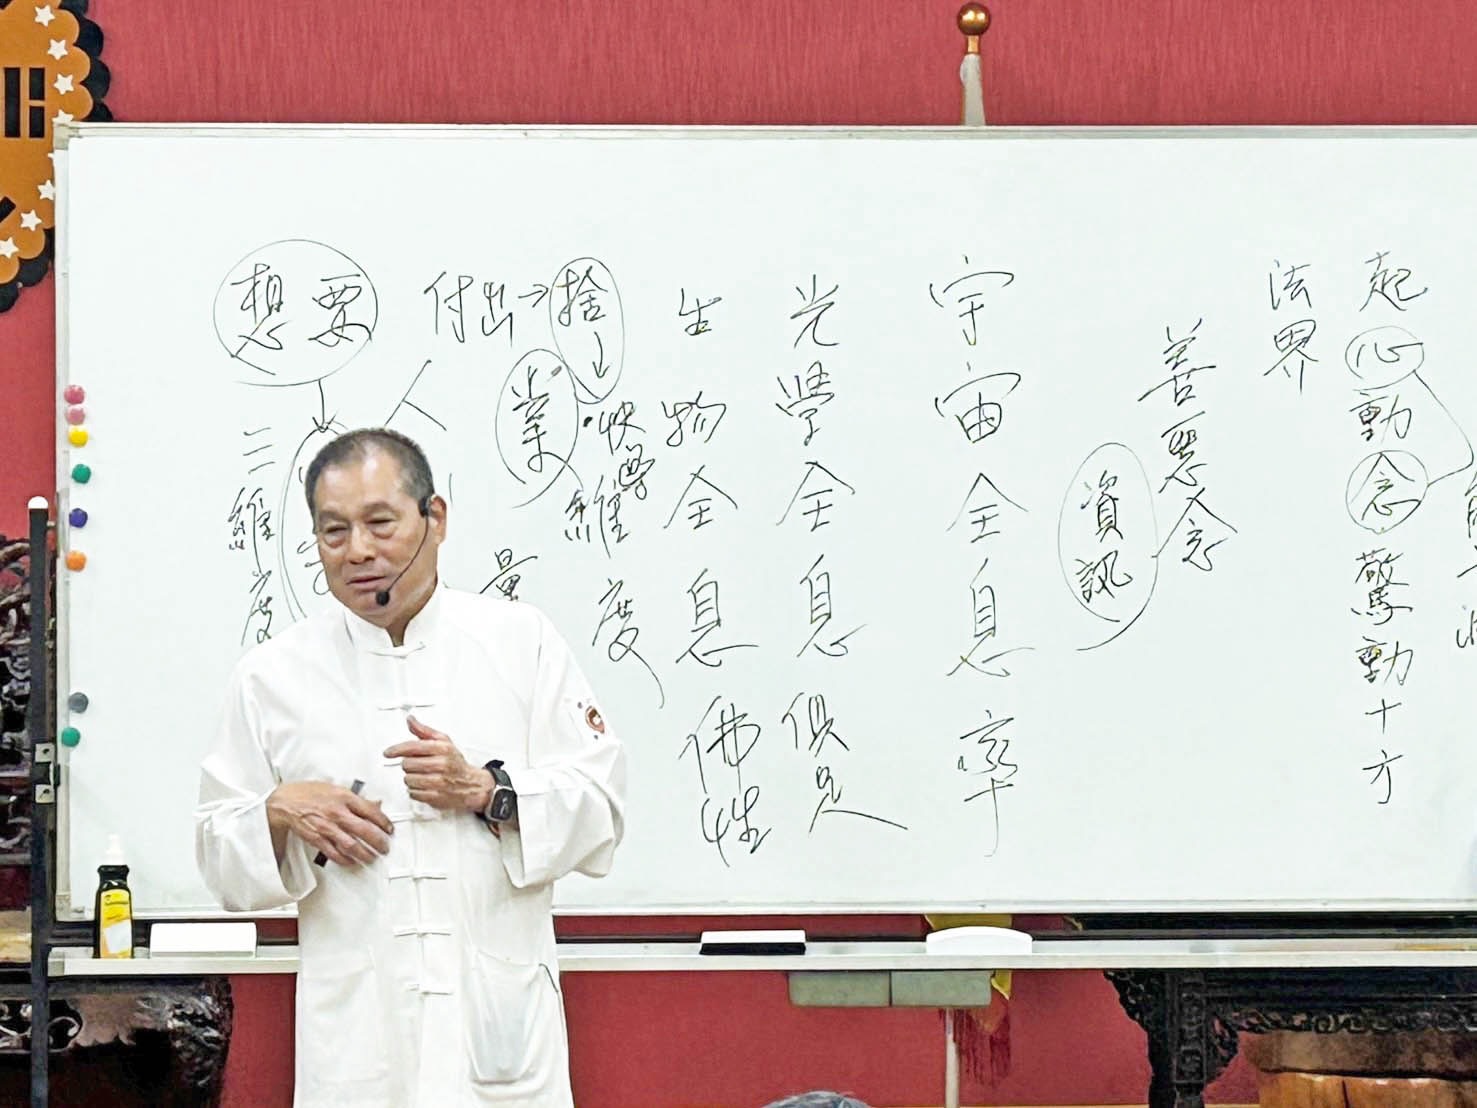 起心動念驚動十方
法界
善惡念
資訊
宇宙全息率
光學全息俱足
生物全息佛性
付出→捨
業
維度
量
人
想要
三維度